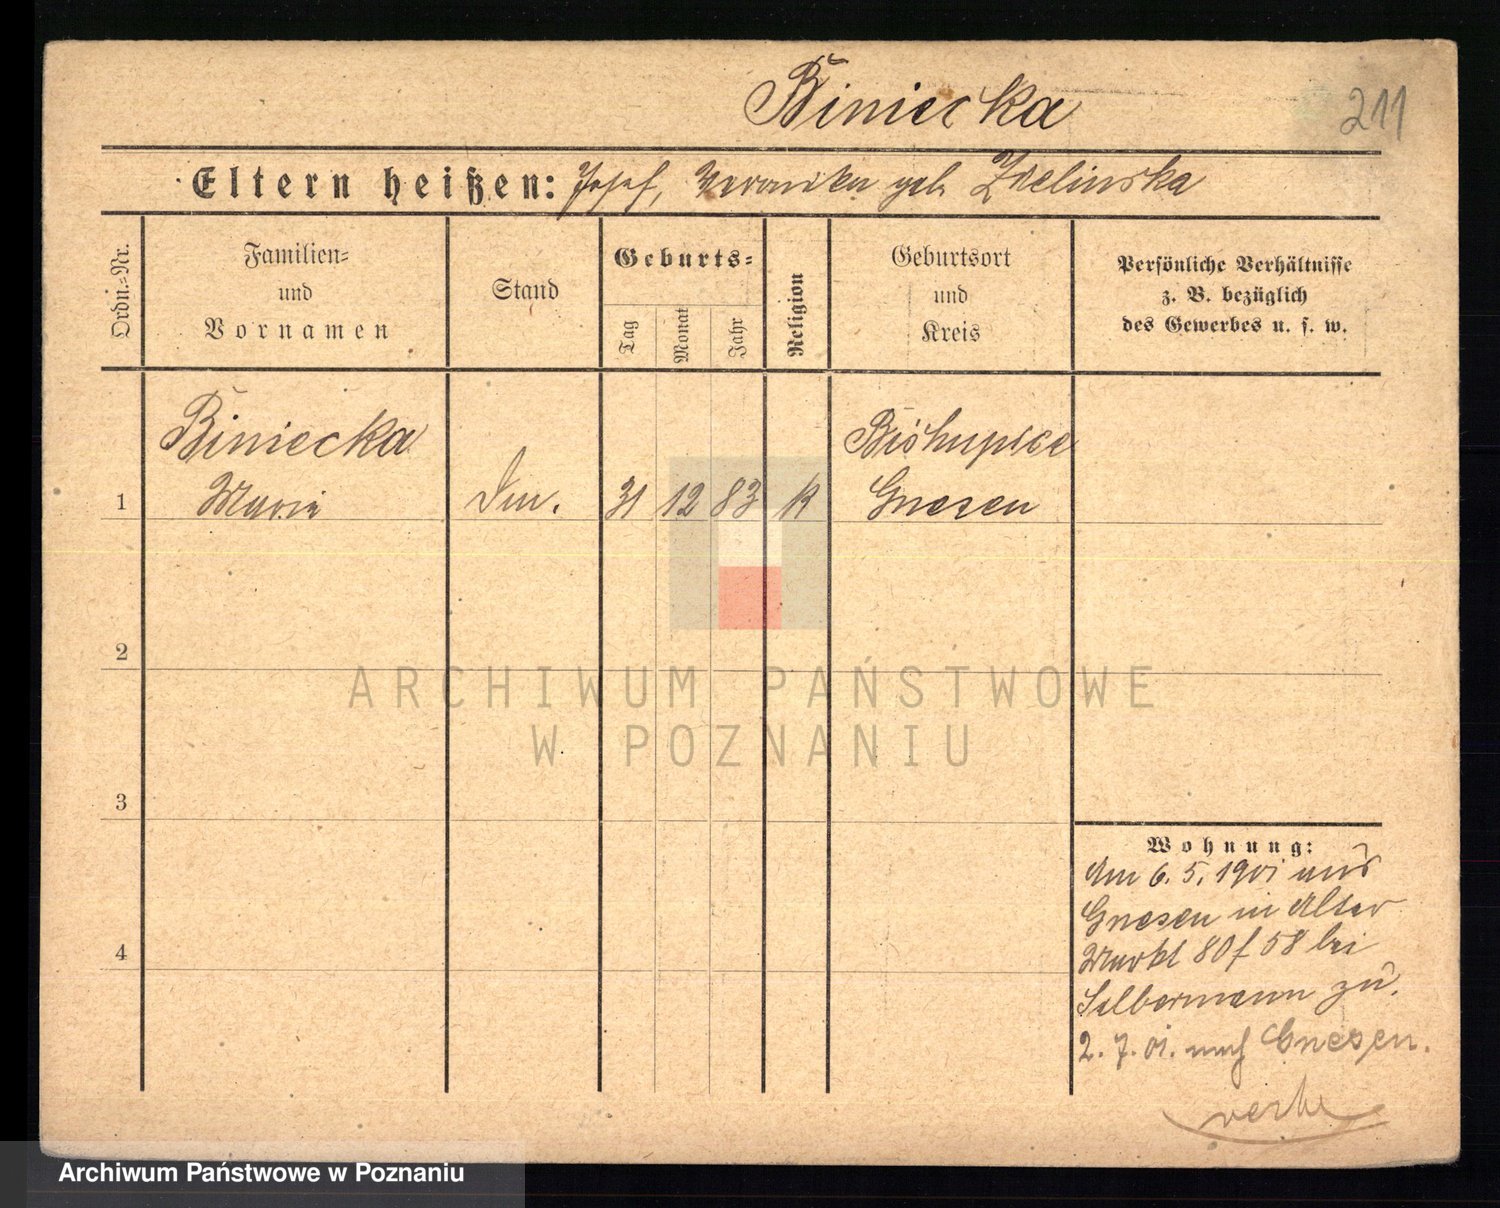 Biniecka
211
Eltern heißen: Josef, Veronika geb Zielinska
Ordn.-Nr.
Familien-
und
Vornamen
Stand
Geburts-
Tag
Monat
Jahr
Religion
Geburtsort
und
Kreis
Persönliche Verhältnisse
z. B. bezüglich
des Gewerbes u. s. w.
Biniecka
Maria
1
31 12 83 K
Biskupice
Gnesen
2
ARCHIWUM PAŃSTWOWE
W POZNANIU
3
Wohnung:
Am 6. 5. 1901 aus
Gnesen in Alter
Markt 80/58 bei
Silbermann zu.
2. 7. 01. nach Gnesen.
4
Archiwum Państwowe w Poznaniu